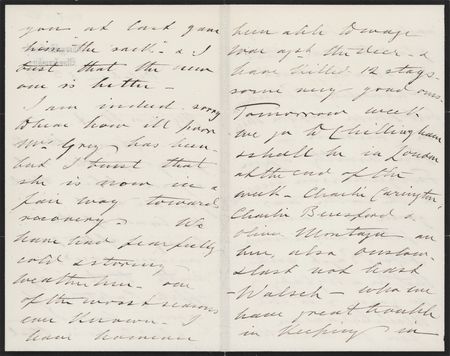 you at last gave
him the sack - & I
trust that the new
one is better -
I am indeed sorry
to hear how ill poor
Mrs Grey has been
but I trust that
she is now in a
fair way towards
recovery. We
have had fearfully
cold & stormy
weather here - one
of the worst seasons
ever known. I
have however
been able to wage
war agst the deer - &
have killed 12 stags -
some very good ones.
Tomorrow week
we go to Chillingham
& shall be in London
at the end of the
week - Charlie Carington,
Charlie Beresford &
Oliver Montagu are
here, also Onslow -
last not least
- Walsh - who we
have great trouble
in keeping in